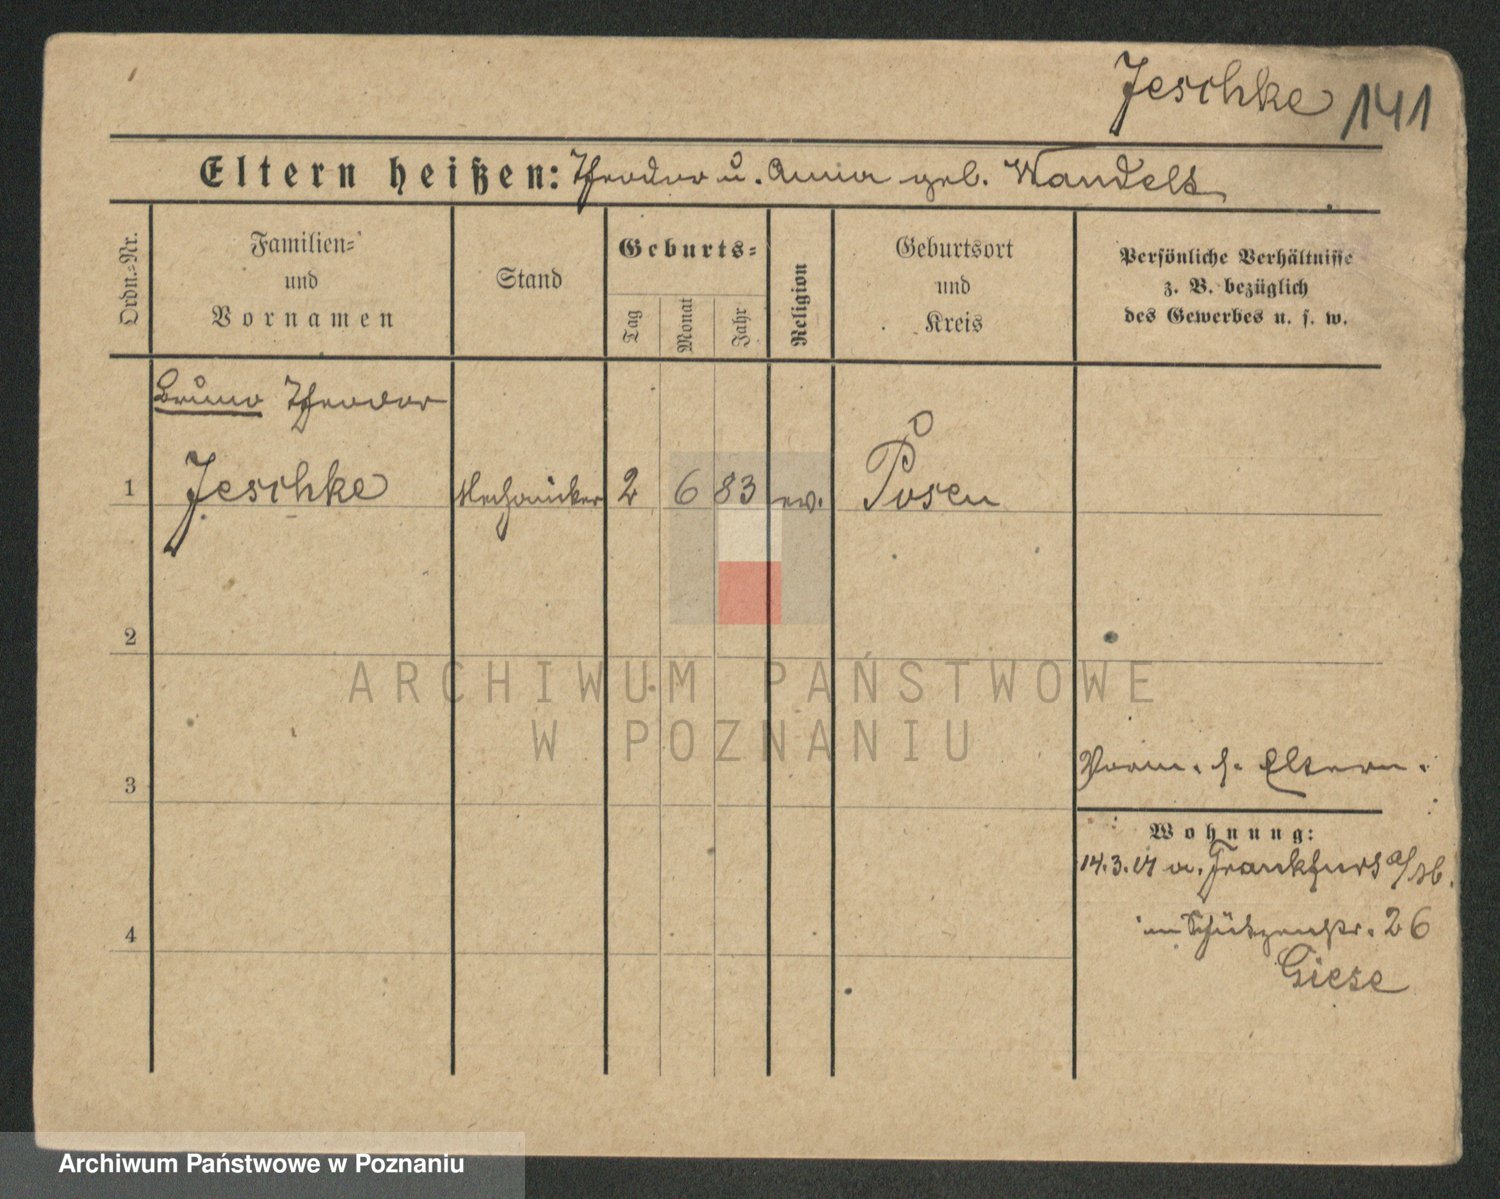 Jeschke 141
Eltern heißen: Theodor u. Anna geb. Wandelt
Ordn.-Nr.
Familien-
und
Vornamen
Stand
Geburts-
Tag
Monat
Jahr
Religion
Geburtsort
und
Kreis
Persönliche Verhältnisse
z. B. bezüglich
des Gewerbes u. s. w.
Bruno Theodor
1 Jeschke Mechaniker 2 6 83 ev. Posen
2
ARCHIWUM PAŃSTWOWE
W POZNANIU
Vorm. s. Eltern.
3
Wohnung:
14.3.17 a. Frankfurt a/
Schützenstr. 26
4
Giese
Archiwum Państwowe w Poznaniu